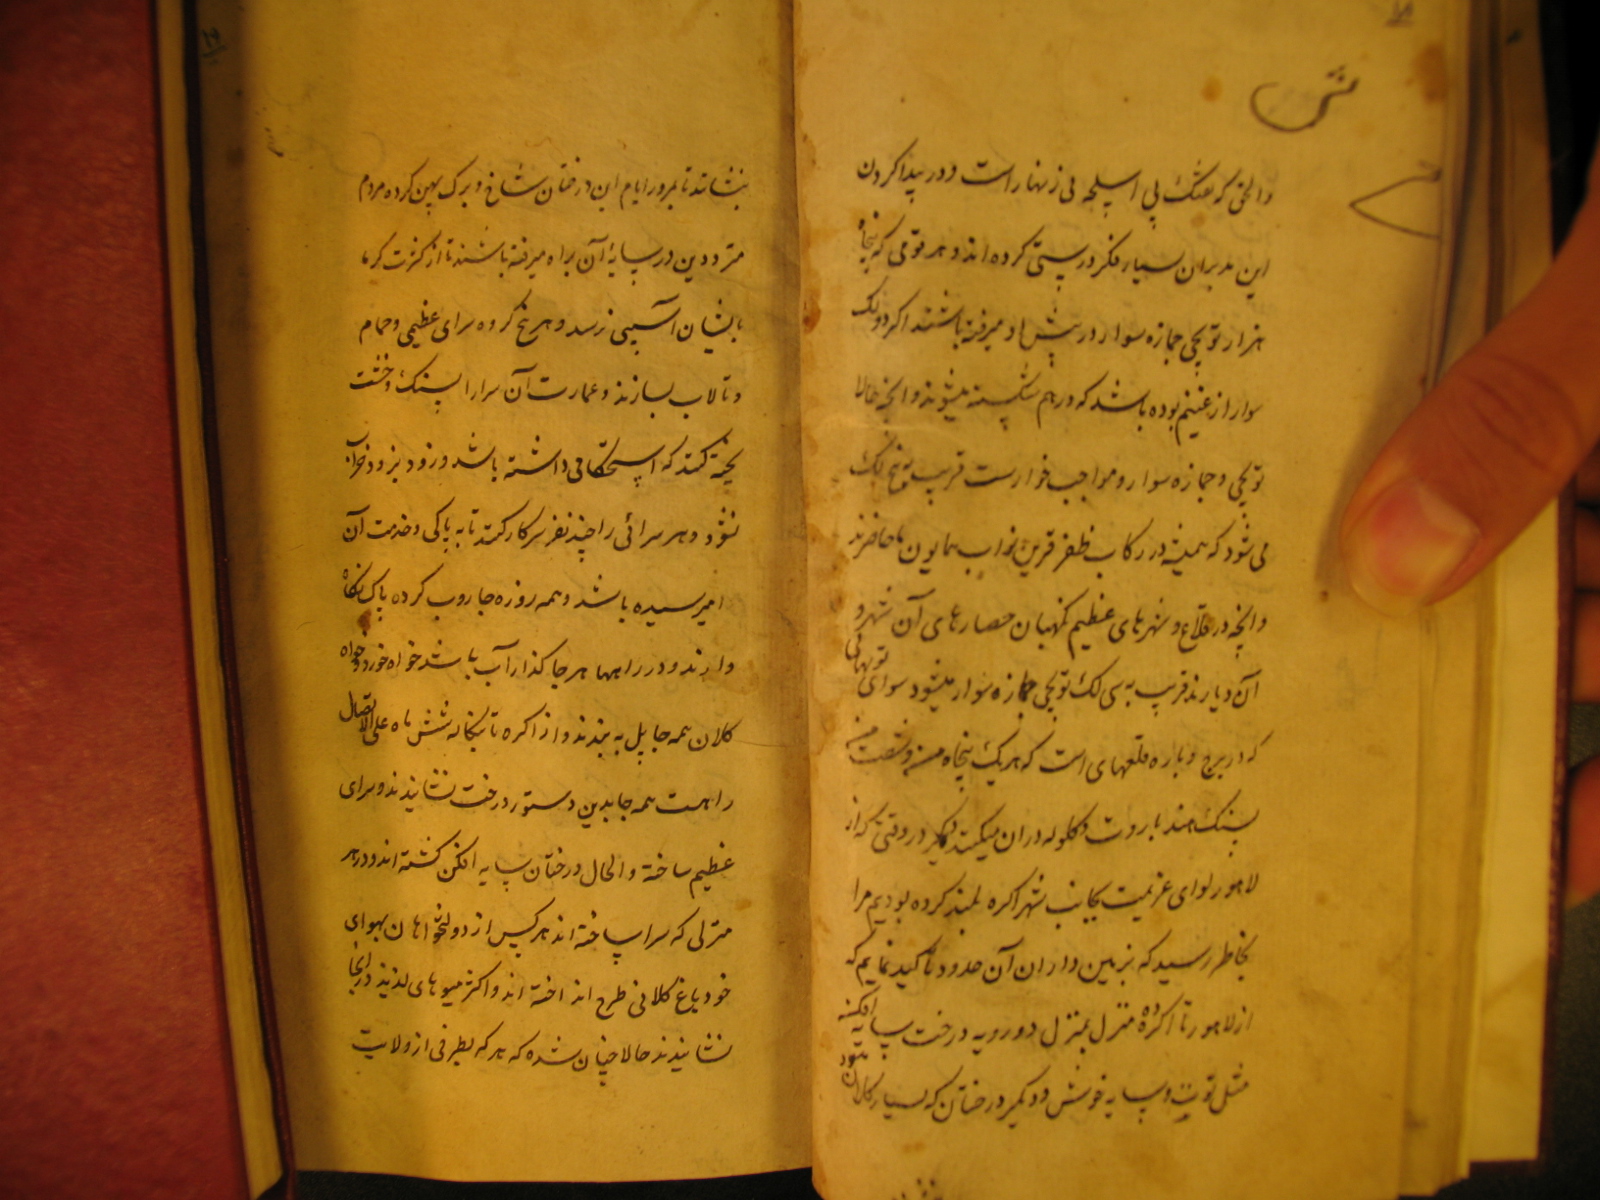 ۱۸
والحق که تفنگ پی اسلحه فی زنهار است و در پیدا کردن
این مدبران بسیار فکر درستی کرده اند و هر قومی که پنجاه
هزار توپچی جمازه سوار در پیش او میرفته باشند اکر دو لک
سوار از غنیم بوده باشد که در هم شکسته میشوند و الحال حالا
توپچی و جمازه سوار و مواجب خوار ست قریب به پنج لک
می شود که همیشه در رکاب ظفر قرین نواب همایون ما حاضرند
و آنچه در قلاع و شهرهای عظیم نکهبان حصارهای آن شهر و
آن دیارند قریب به سی لک توپچی جمازه سوار میشود سوای توپهائی
که در برج و باره قلعهای است که هر یک پنجاه من و شصت من
سنک هند باروت و کلوله دران میکنند دیگر در وقتی که از
لاهور لوای عزیمت بجانب شهر اکره بلند کرده بودیم مرا
بخاطر رسید که بزمین داران آن حدود تاکید نمایم که
از لاهور تا اکره ده منزل بمنزل دو رویه درخت سایه افکنه
مثل توت و سایه خوش و دیگر درختان که بسیار کلان شود
۱۹
بنشانند تا بمرور ایام این درختان شاخ و برک پهن کرده مردم
مترددین در سایۀ آن براه میرفته باشند تا از کثرت کرما
بایشان آسیبی نرسد و هر پنج کروه سرای عظیمی و حمام
و تالاب بسازند و عمارت آن سرا را بسنک و خشت
پخته کنند که استحکامی داشته باشد و زود بزود خراب
نشود و هر سرائی را چند نفر سرکار کنند تا به پاکی و خدمت آن
امیر سیده باشد و همه روزه جاروب کرده پاک نکاه
دارند و در راهها هر جا کذار آب باشد خواه خورد و خواه
کلان همه جا پل به بندند و از اکره تا بنکاله شش ماه علی الاتصال
راهست همه جا بدین دستور درخت نشانیدند و سرای
عظیم ساخته و الحال درختان سایه افکن کشته اند و در هر
منزلی که سرا ساخته اند هر کس از دولتخواهان بهوای
خود باغ کلانی طرح انداخته اند و اکثر میوهای لذیذ در آنجا
نشانیدند حالا چنان شده که هر که بطرفی از ولایت